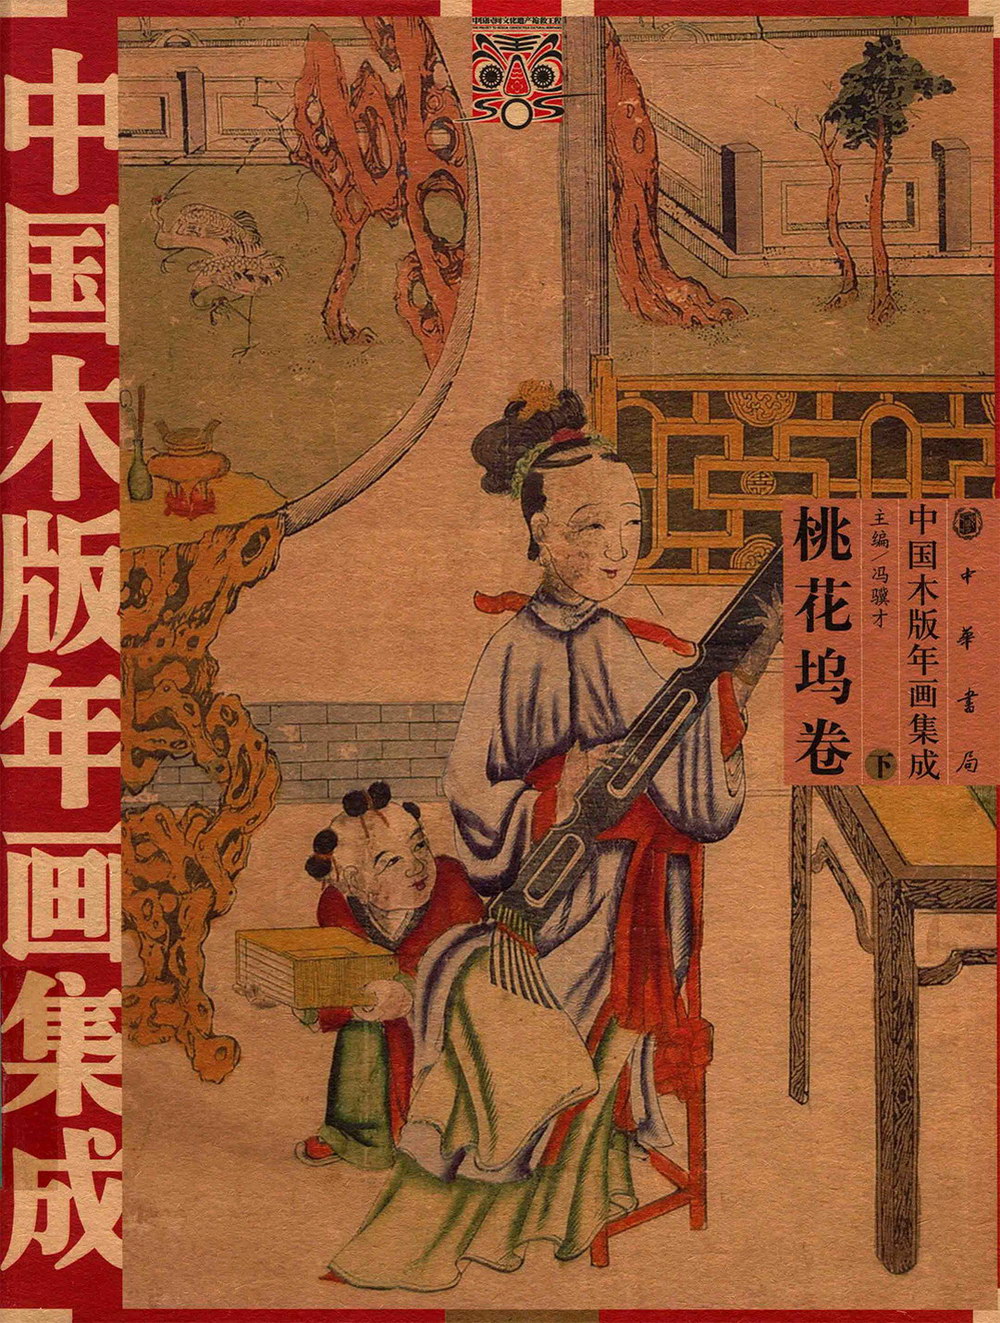 中国木版年画集成
中国民间文化遗产抢救工程
SOS
中华書局
中国木版年画集成
主编 冯骥才
桃花坞卷
下